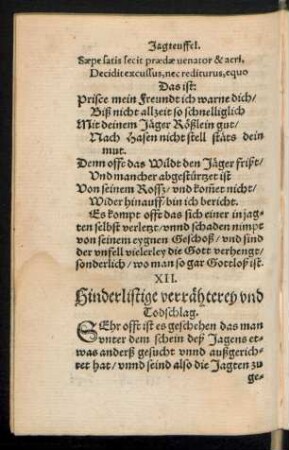 Jagteuffel.
Sæpe satis fecit prædæ uenator & acri,
Decidit excussus, nec rediturus, equo
Das ist:
Prisce mein Freundt ich warne dich/
Biß nicht allzeit so schnelliglich
Mit deinem Jäger Rößlein gut/
Nach Hasen nicht stell stäts dein
mut.
Denn offt das Wildt den Jäger frißt/
Vnd mancher abgestürtzet ist
Von seinem Rossz/ vnd kom̃et nicht/
Wider hinauff/ bin ich bericht.
Es kompt offt das sich einer in jag-
ten selbst verletzt/ vnnd schaden nimpt
von seinem eygnen Geschoß/ vnd sind
der vnfell vielerley die Gott verhengt/
sonderlich/ wo man so gar Gottloß ist.
XII.
Hinderlistige verrähterey vnd
Todschlag.
SEhr offt ist es geschehen das man
vnter dem schein deß Jagens et-
was anderß gesucht vnnd außgerich-
tet hat/ vnnd seind also die Jagten zu
ge-